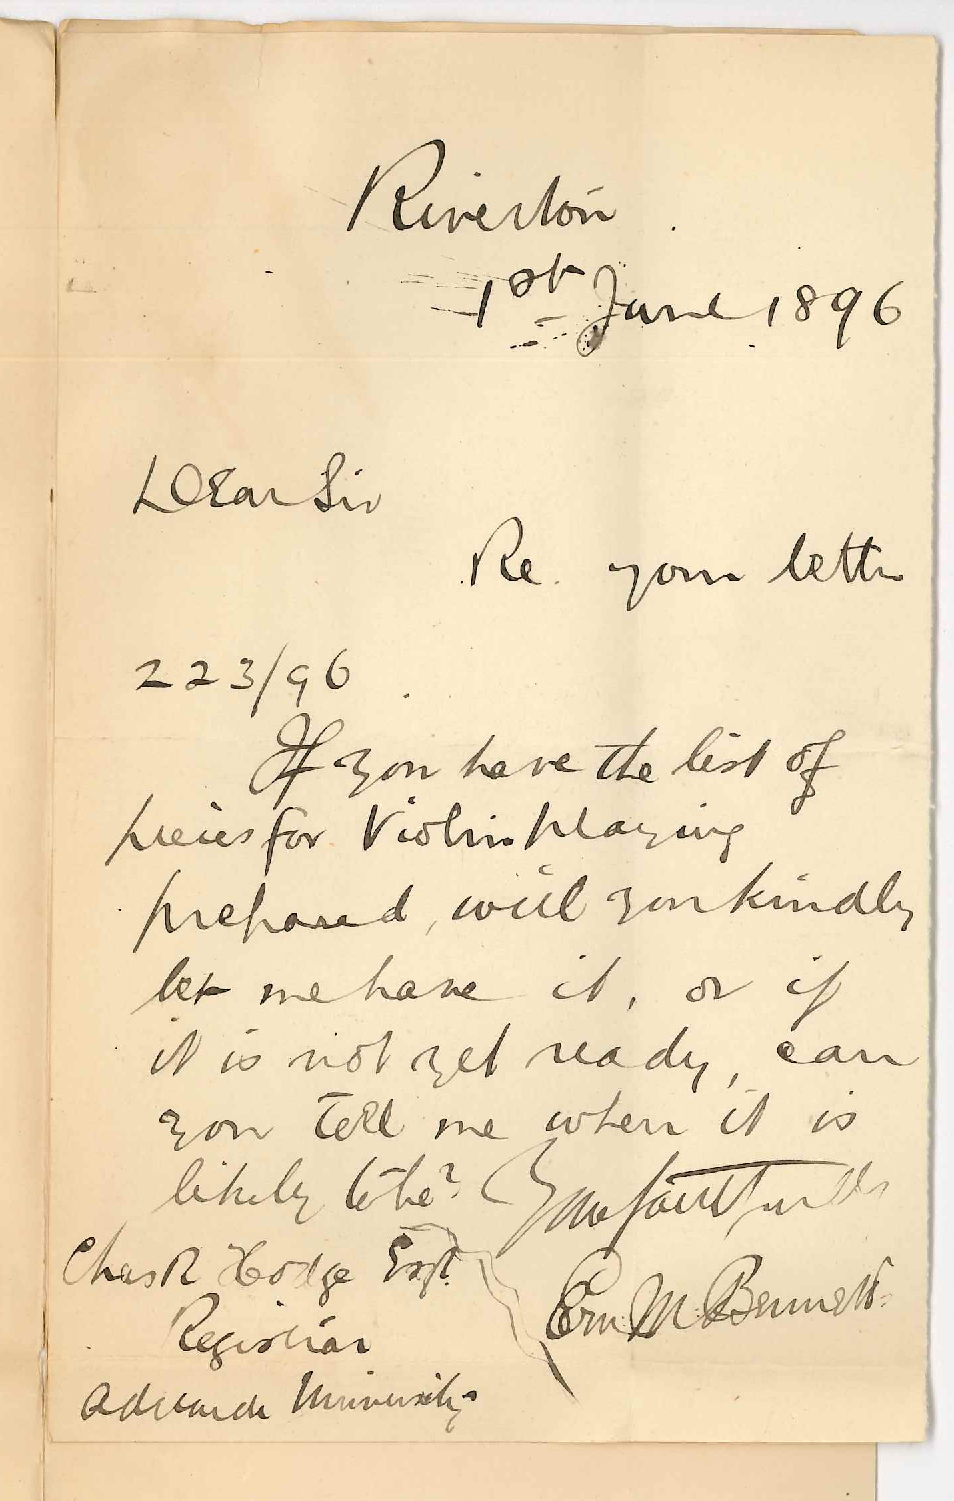 Riverton
1st June 1896
Dear Sir
Re. your letter
223/96
If you have the list of
pieces for Violin playing
prepared, will you kindly
let me have it, or if
it is not yet ready, can
you tell me when it is
likely to be?
Yours faithfully
Ern M Bennett
Chas R Hodge Esq.
Registrar
Adelaide University